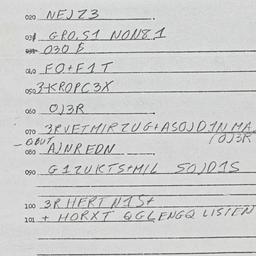 020 NEJZ3
03 GRO,S1 NON8.1
030 E
040 FO+F1T
050 3+KROPC3X
060 OJ3R
070 3RVETMIRZUG+ASOJD1NMA
OBUT (OJ3R
080 AJNREDN
090 G1ZUKTS+MIL SOJD1S
100 3R HERT N1S+
101 + HORXT QGLENGQ LISTEN